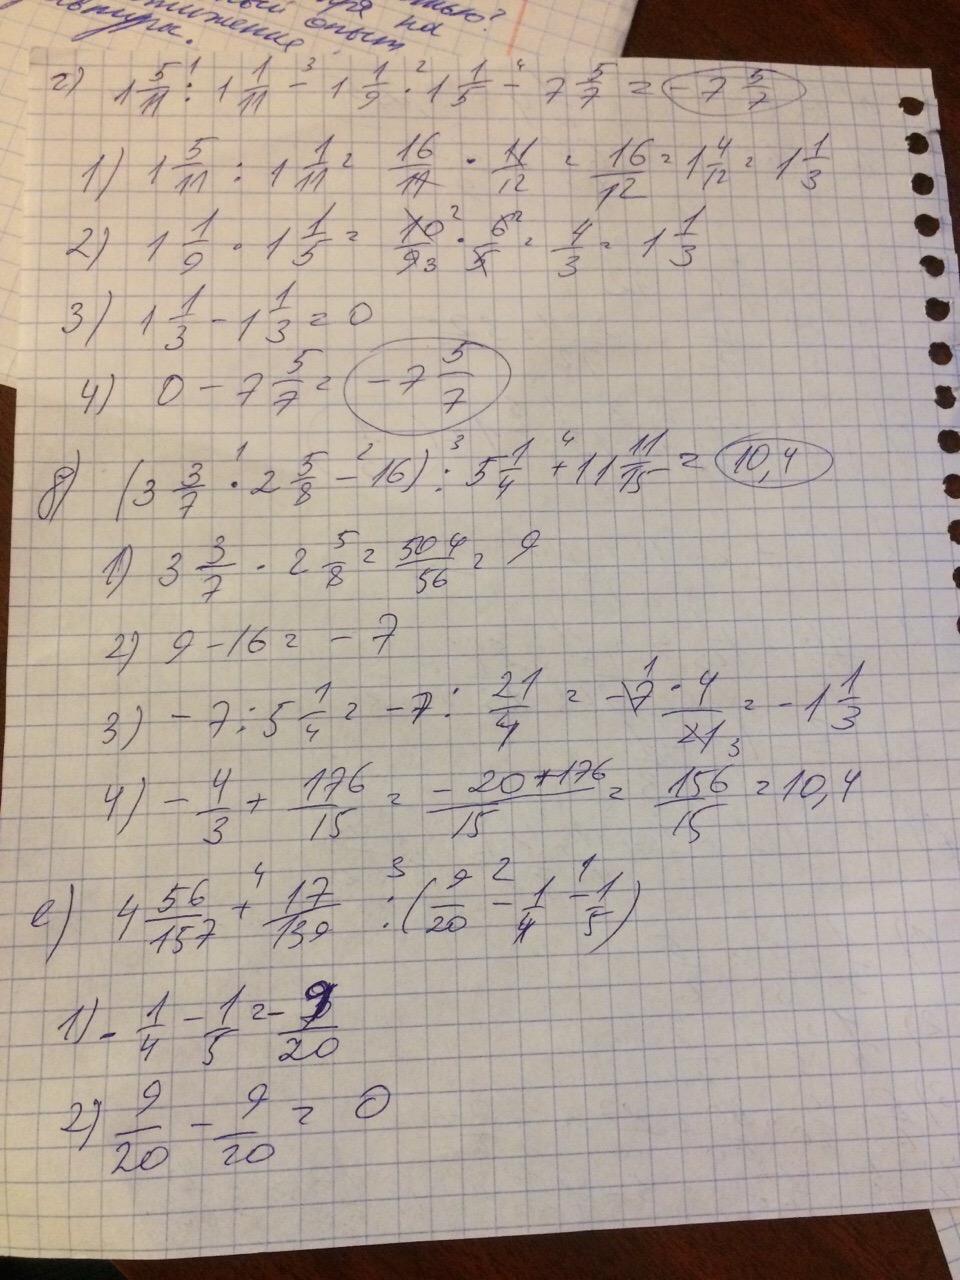 опыт
г) 1 5/11 : 1 1/11 - 1 1/9 · 1 1/5 - 7 5/7 = -7 5/7
1) 1 5/11 : 1 1/11 = 16/11 · 11/12 = 16/12 = 1 4/12 = 1 1/3
2) 1 1/9 · 1 1/5 = 10/9 · 6/5 = 4/3 = 1 1/3
3) 1 1/3 - 1 1/3 = 0
4) 0 - 7 5/7 = -7 5/7
д) (3 3/7 · 2 5/8 - 16) : 5 1/4 + 11 11/15 = 10,4
1) 3 3/7 · 2 5/8 = 504/56 = 9
2) 9 - 16 = -7
3) -7 : 5 1/4 = -7 : 21/4 = -7 · 4/21 = -1 1/3
4) -4/3 + 176/15 = -20+176/15 = 156/15 = 10,4
е) 4 56/157 + 17/139 : (9/20 - 1/4 - 1/5)
1) -1/4 - 1/5 = -9/20
2) 9/20 - 9/20 = 0